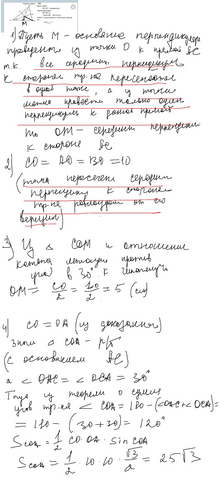 1) Пусть M - основание перпендикуляра
проведенного из точки O к прямой AC
т.к. все середин. перпендик.
к сторонам тр-ка пересекаются
в одной точке, а из точки
можно провести только один
перпендикуляр к данной прямой
то OM - середин. перпендик.
к стороне AC
2) CO = AO = BO = 10
(точка пересечен. середин.
перпендик. к сторонам
тр-ка равноудал. от его
вершин)
3) Из △ COM и отношения
катета лежащего против
угла в 30° к гипотенузе
OM = CO/2 = 10/2 = 5 (см)
4) CO = OA (из доказанного)
Значит △ COA - р/б
(с основанием AC)
а < OAC = < OCA = 30°
Тогда из теоремы о сумме
углов тр-ка < COA = 180 - (<OAC + <OCA) =
= 180 - (30 + 30) = 120°
S COA = 1/2 CO · OA · sin COA
S COA = 1/2 · 10 · 10 · √3/2 = 25√3